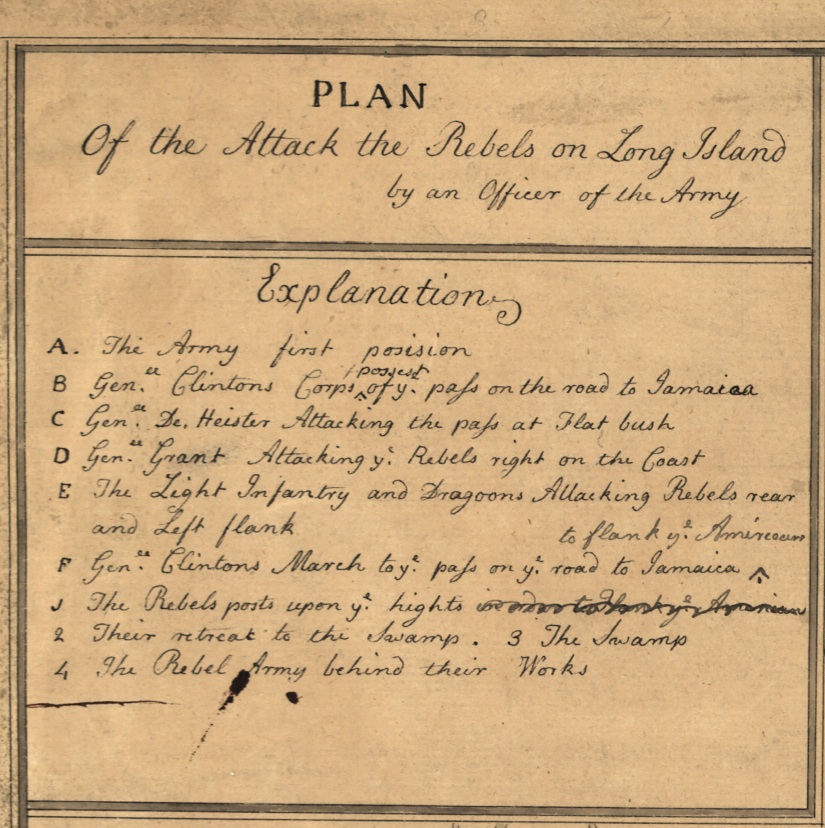 PLAN
Of the Attack the Rebels on Long Island
by an Officer of the Army
Explanation
A. The Army first posision
possest
B Gen.ll Clintons Corps ‸ of y.e pass on the road to Jamaica
C Gen.ll De. Heister Attacking the pass at Flat bush
D Gen.ll Grant Attacking y.e Rebels right on the Coast
E The Light Infantry and Dragoons Attacking Rebels rear
and Left flank
to flank y.e American
F Gen.ll Clintons March to y.e pass on y.e road to Jamaica ‸
1 The Rebels posts upon y.e hights in order to flank y.e American
2 Their retreat to the Swamp. 3 The Swamp
4 The Rebel Army behind their Works